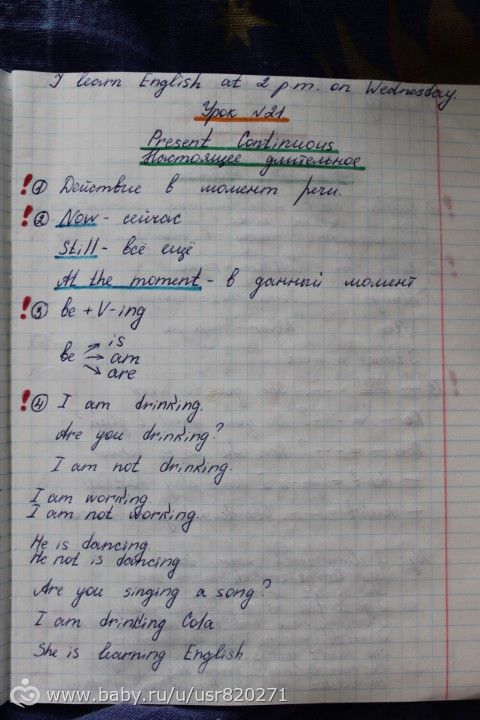 I learn English at 2 p.m. on Wednesday.
Урок №21
Present Continuous
Настоящее длительное
! ① Действие в момент речи.
! ② Now - сейчас
Still - всё ещё
At the moment - в данный момент
! ③ be + V-ing
is
be → am
are
! ④ I am drinking.
Are you drinking?
I am not drinking.
I am working.
I am not working.
He is dancing.
He not is dancing
Are you singing a song?
I am drinking Cola.
She is learning English
www.baby.ru/u/usr820271